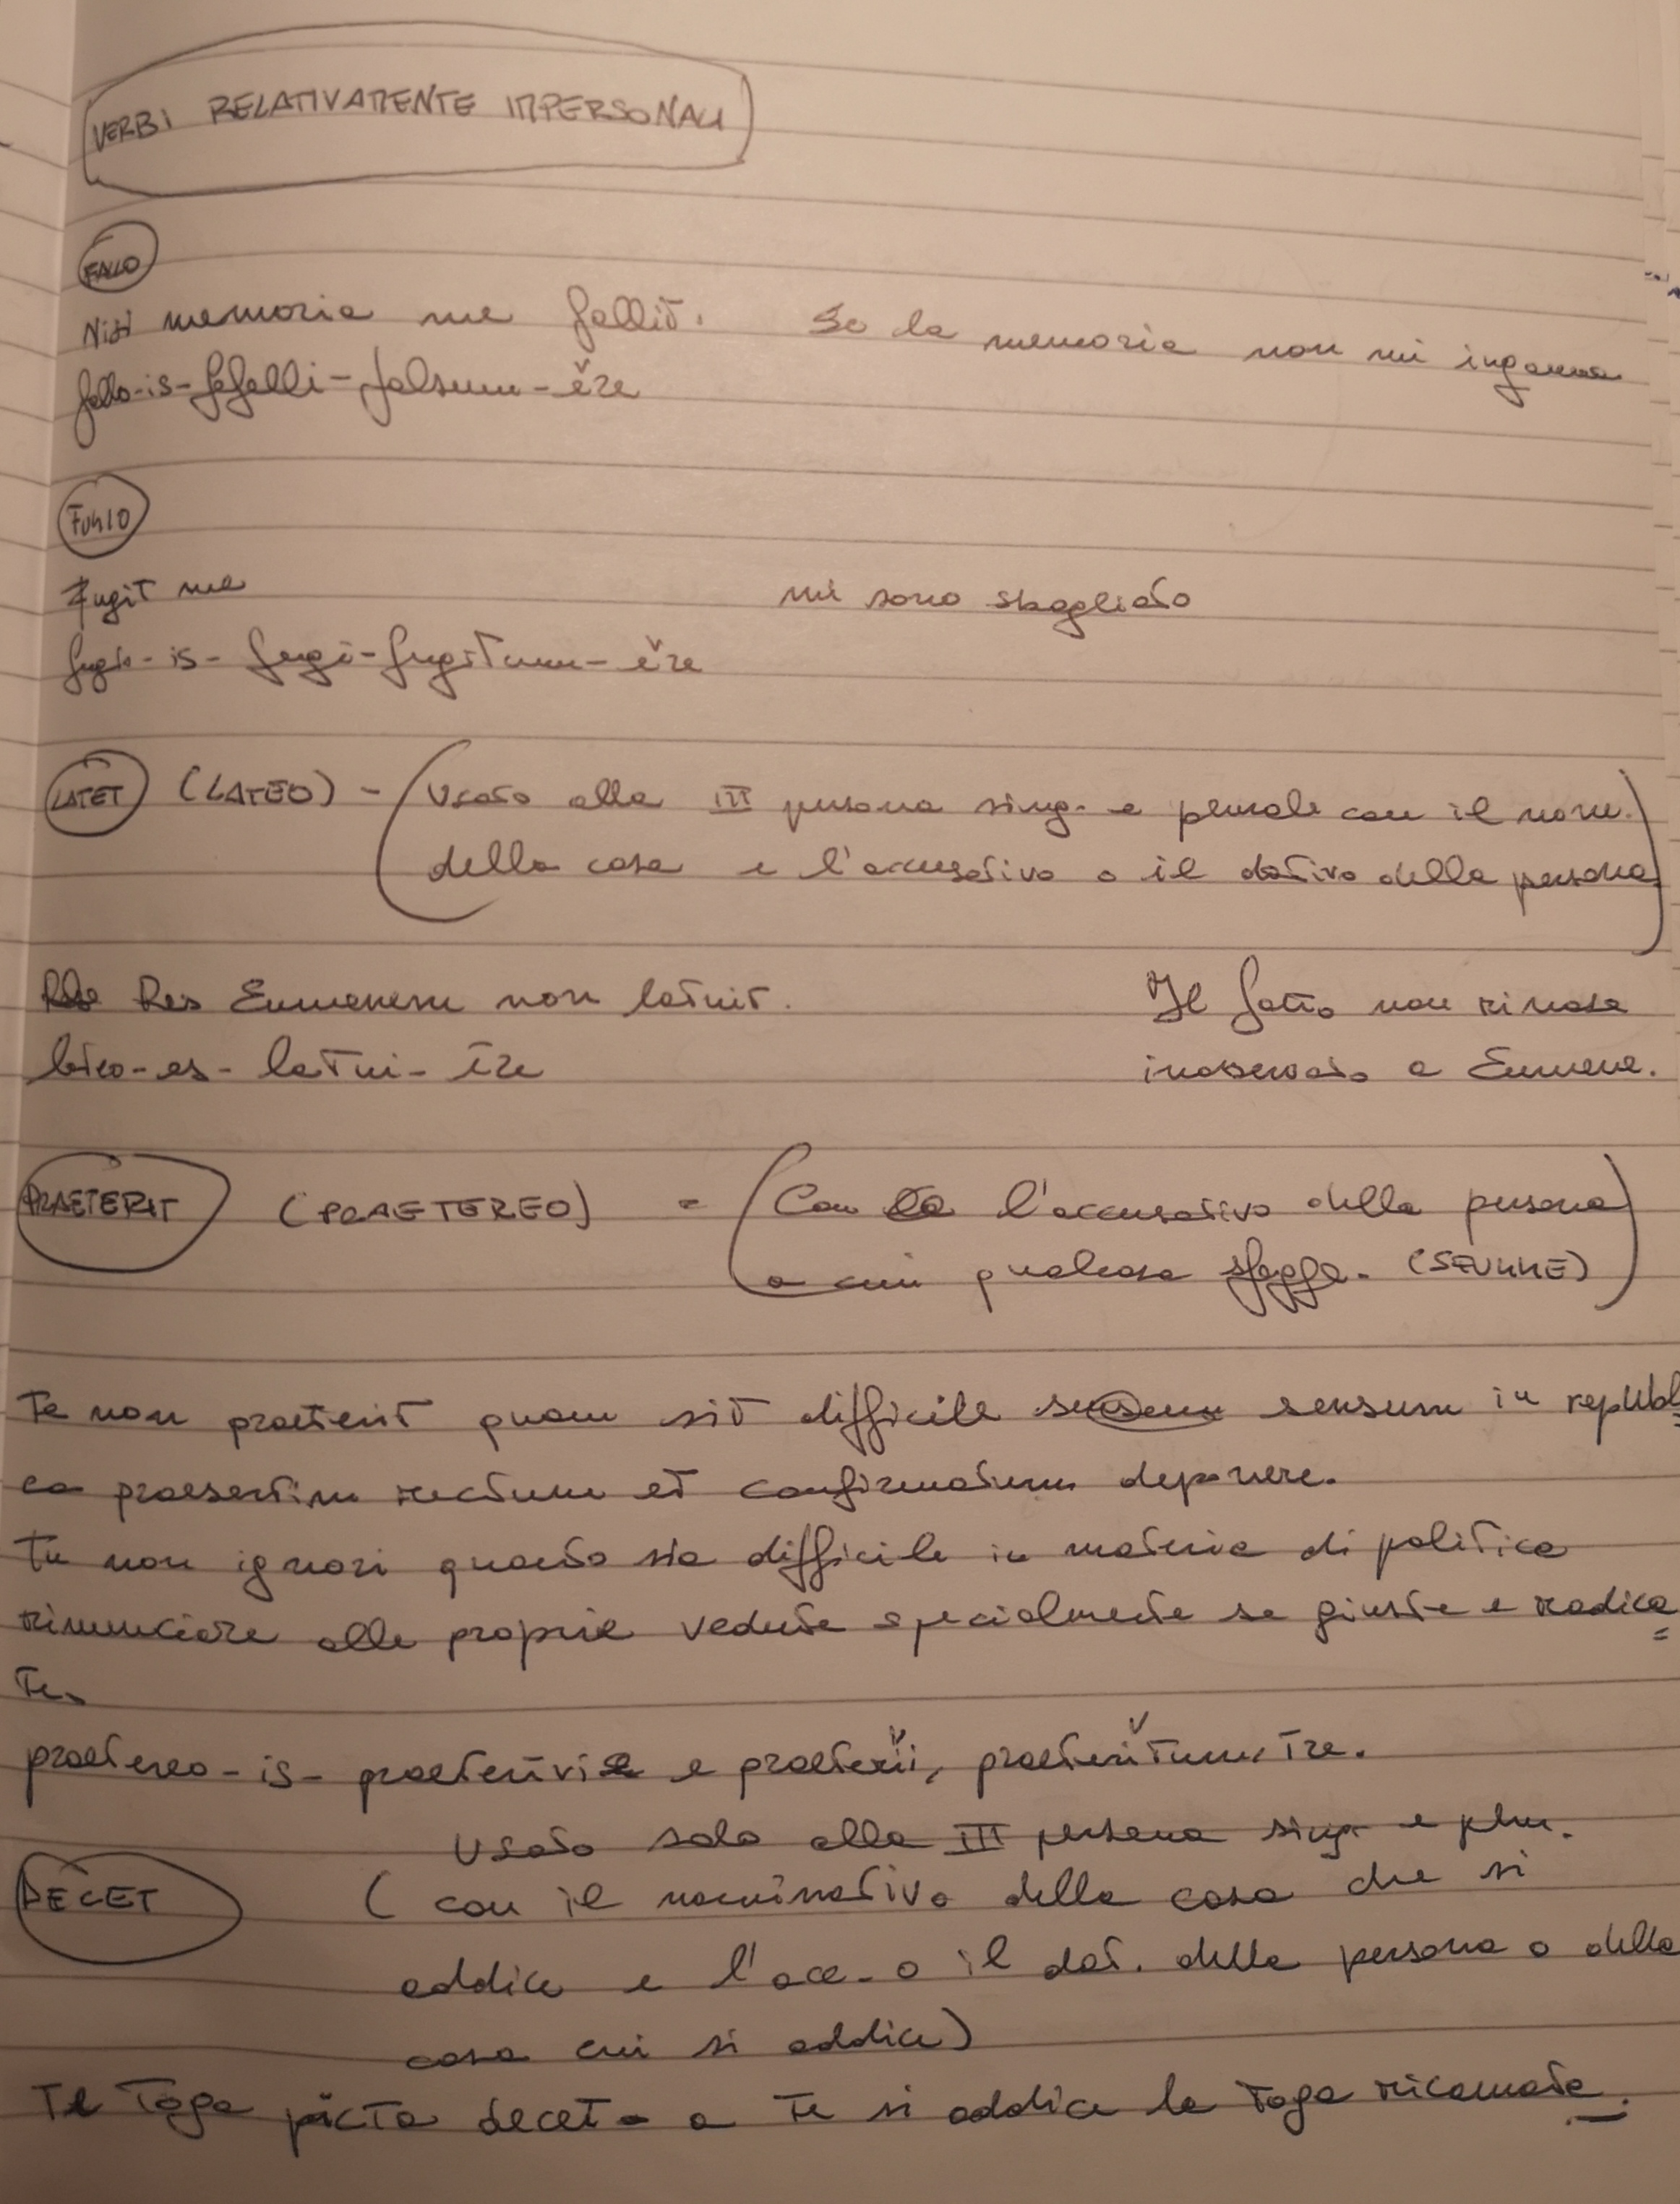 VERBI RELATIVAMENTE IMPERSONALI
FALLO
Nisi memoria me fallit. Se la memoria non mi inganna
fallo-is-fefelli-falsum-ĕre
FUGIO
Fugit me mi sono sbagliato
fugio-is-fugi-fugitum-ĕre
LATET (LATEO) - (Usato alla III persona sing. e plurale con il nom.
della cosa e l'accusativo o il dativo della persona)
Res Eumenem non latuit. Il fatto non rimase
lateo-es-latui-ēre inosservato a Eumene.
PRAETERIT (PRAETEREO) = (Con l'accusativo della persona
a cui qualcosa sfugge. (SFUGGE)
Te non praeterit quam sit difficile sensum in republi
ca praesertim rectum et confirmatum deponere.
Tu non ignori quanto sia difficile in materia di politica
rinunciare alle proprie vedute specialmente se giuste e radica
te.
praetereo-is-praeterivi e praeterĭi, praeterĭtum, īre.
Usato solo alla III persona sing. e plu.
DECET (con il nominativo della cosa che si
addice e l'acc. o il dat. della persona o della
cosa cui si addice)
Te toga picta decet - a te si addice la toga ricamata.